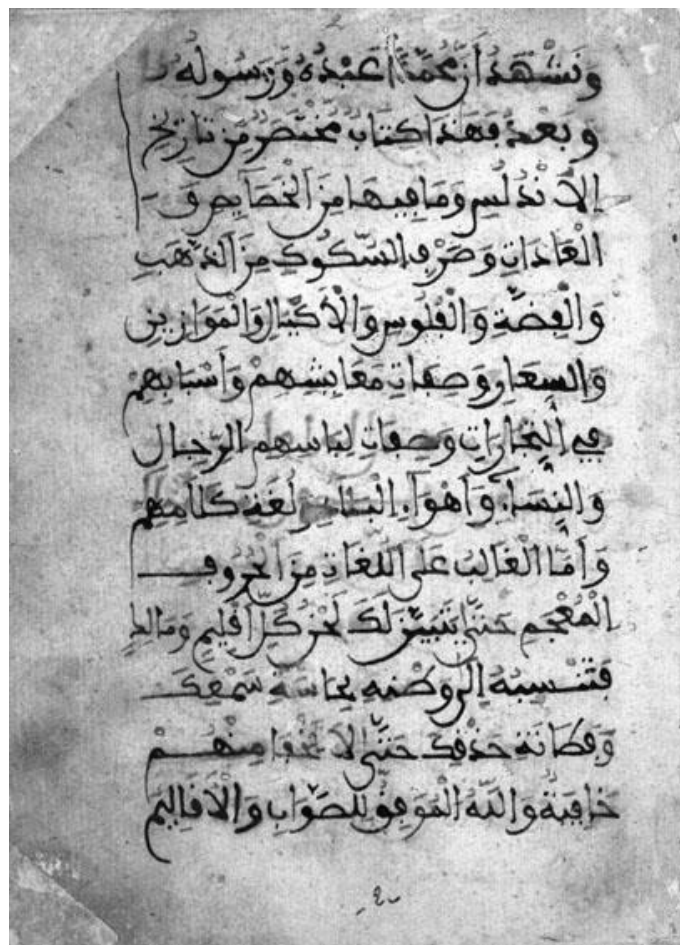 ونشهد أن محمدا عبده ورسوله
وبعد فهذا كتاب مختصر من تاريخ
الأندلس وما فيها من الخصايص و
العادات وصرف السكوك من الذهب
والفضة والفلوس والأكيال والموازين
والسعار وصفات معايشهم وأسبابهم
في التجارات وصفات لباسهم الرجال
والنساء وأهواء البلاد لغة كلامهم
وأما الغالب على اللغات من الحروف
المعجم حتى يتبين لك لحن كل إقليم
فتنسبه إلى وطنه بحاسة سمعك
وفطانة حذقك حتى لا تخفا منهم
خافية والله الموفق للصواب والأقاليم